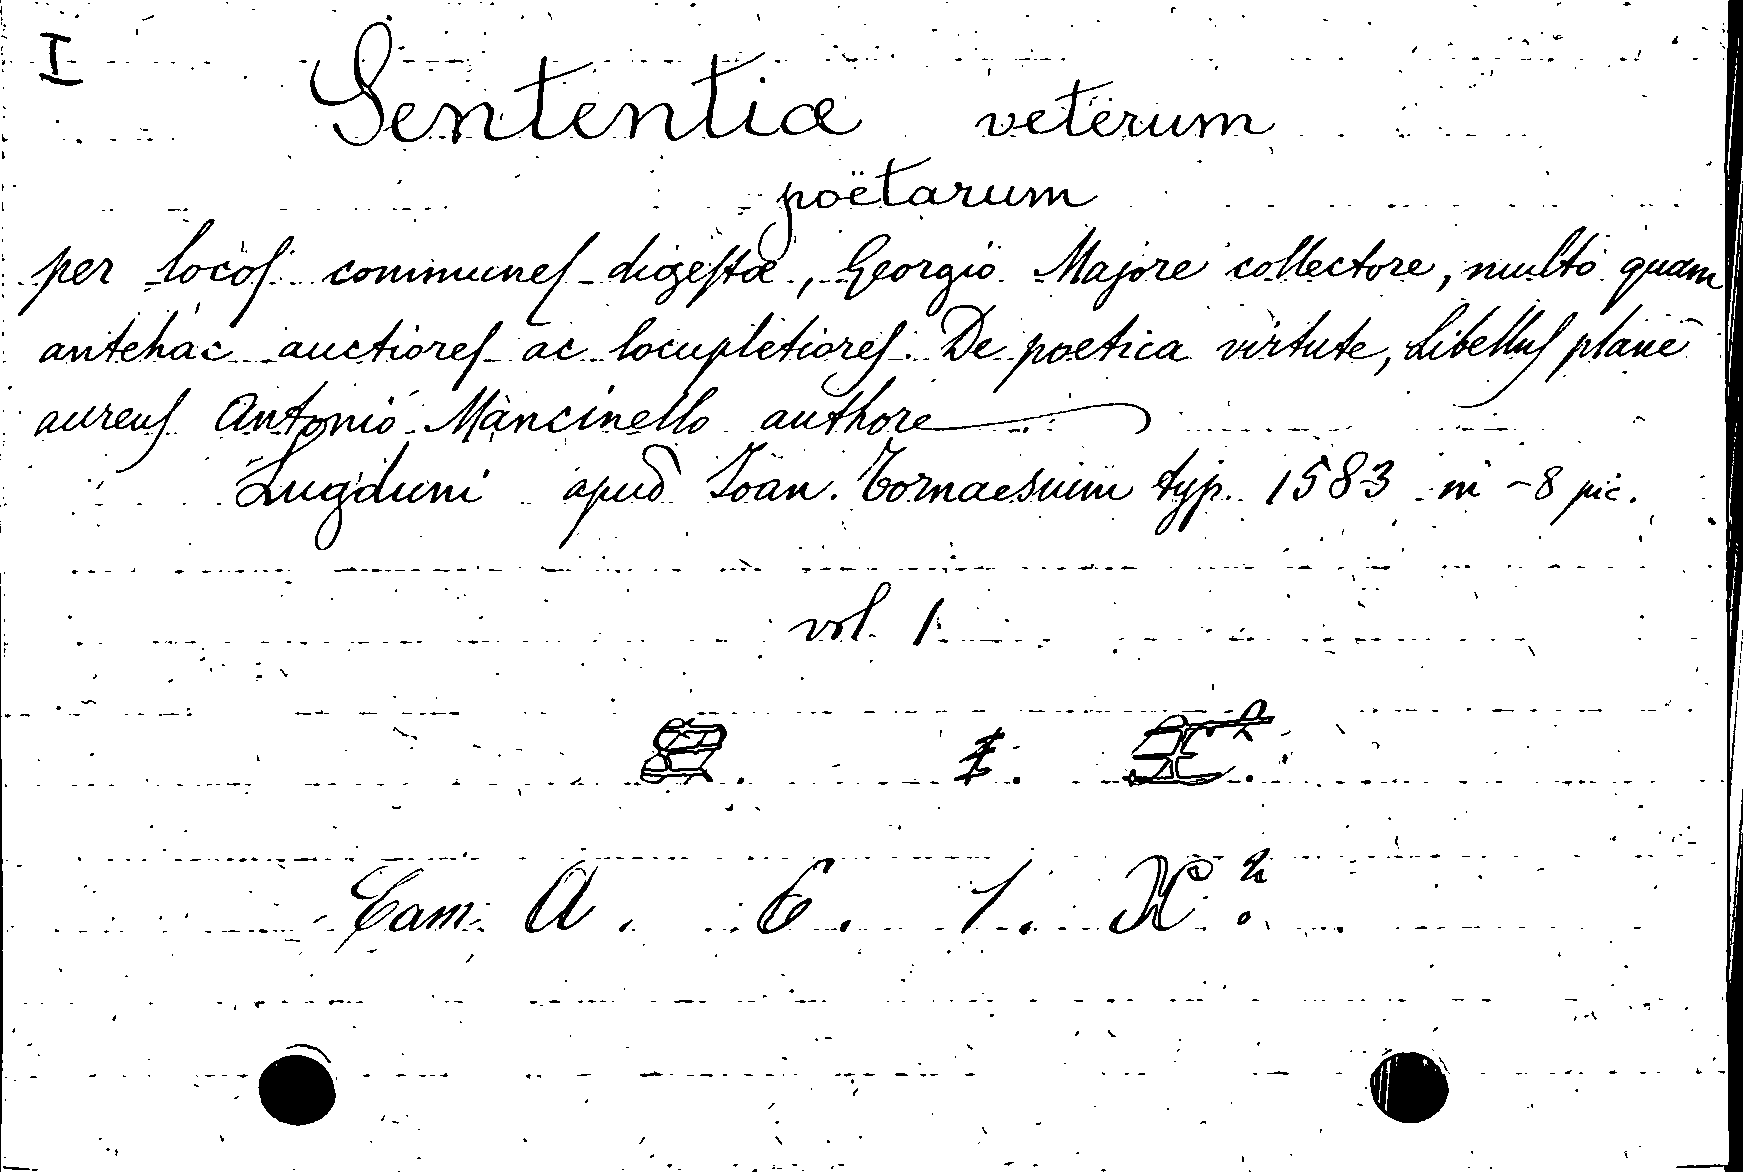 I
Sententiæ veterum
poëtarum
per locos communes digestæ, Georgio Majore collectore, multò quam
antehàc auctiores ac locupletiores. De poetica virtute, Libellus planè
aureus Antonio Mancinello authore
Lugduni apud Ioan. Tornaesium typ. 1583 in-8 pic.
vol. 1
Cam. A. 6. 1. K².